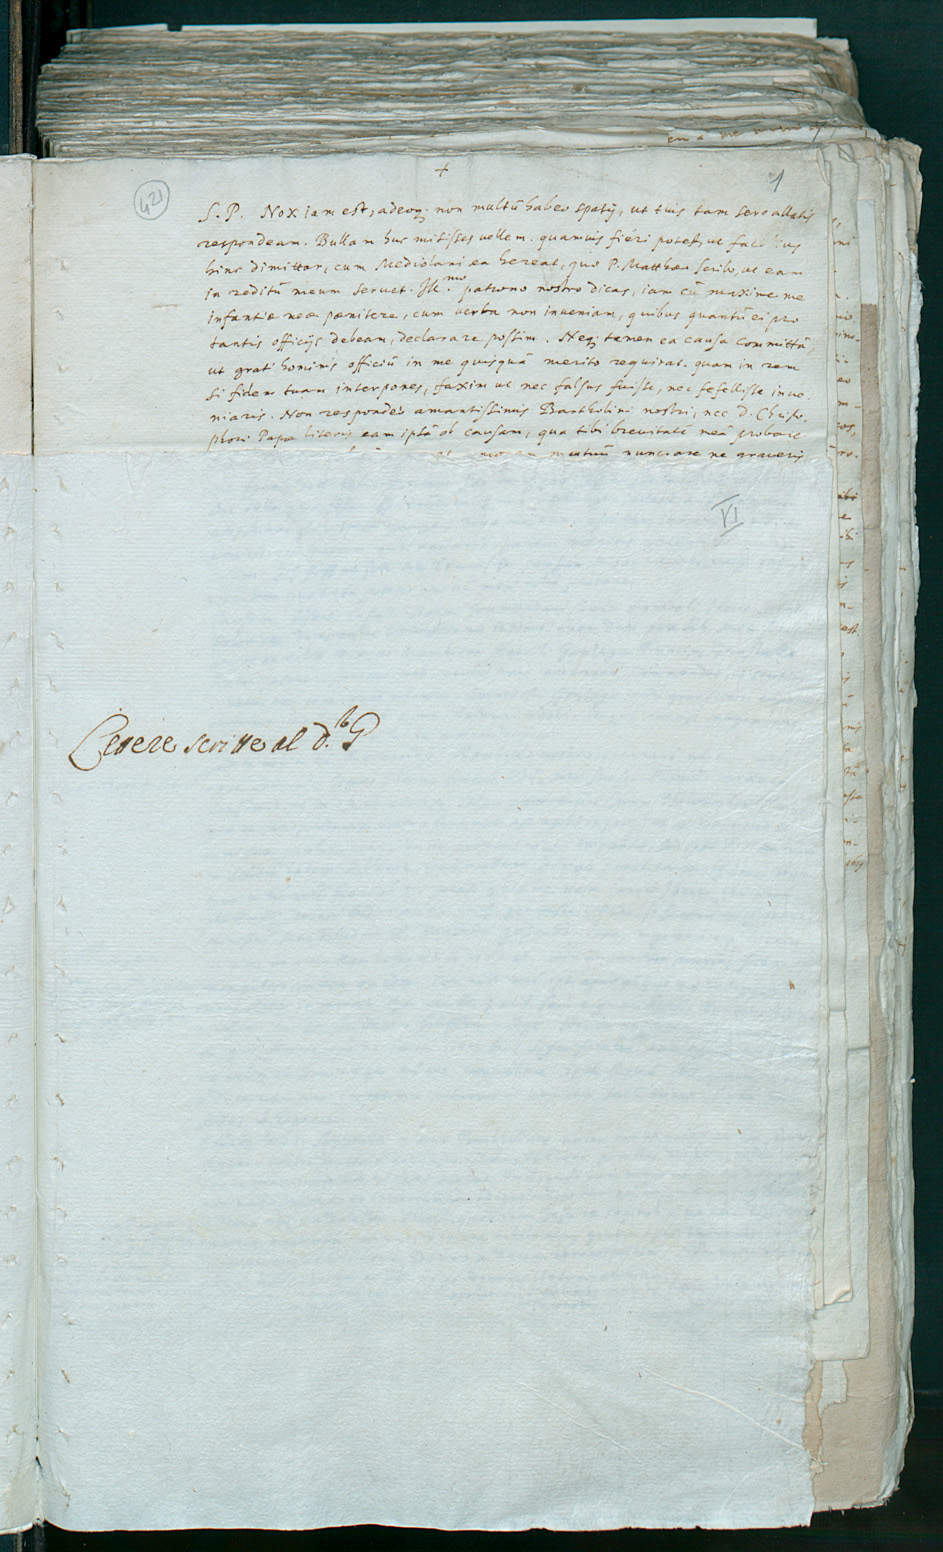 +
1
421
S. P. Nox iam est, adeoq; non multũ habeo spatij, ut tuis tam sero allatis
respondeam. Bullam huc misisses vellem. quamuis fieri potest, ut facilius
hinc dimittar, cum Mediolani ea hereat, quo P. Matthæo scribo, ut eam
in reditũ meum seruet. Ill.mo patrono nostro dicas, iam cũ maxime me
infantiæ meæ pœnitere, cum uerba non inueniam, quibus quantũ ei pro
tantis officijs debeam, declarare possim. Neq; tamen ea causa committã,
ut grati hominis officiũ in me quisquã merito requirat. quam in rem
si fidem tuam interpones, faxim ut nec falsus fuisse, nec fefellisse inue-
niaris. Non respondeo amantissimis Bartholini nostri, nec D. Christo-
phori Papæ literis eam ipsã ob causam, qua tibi breuitatẽ meã probare
nunciare ne graueris
VI
Lettere scritte al D.